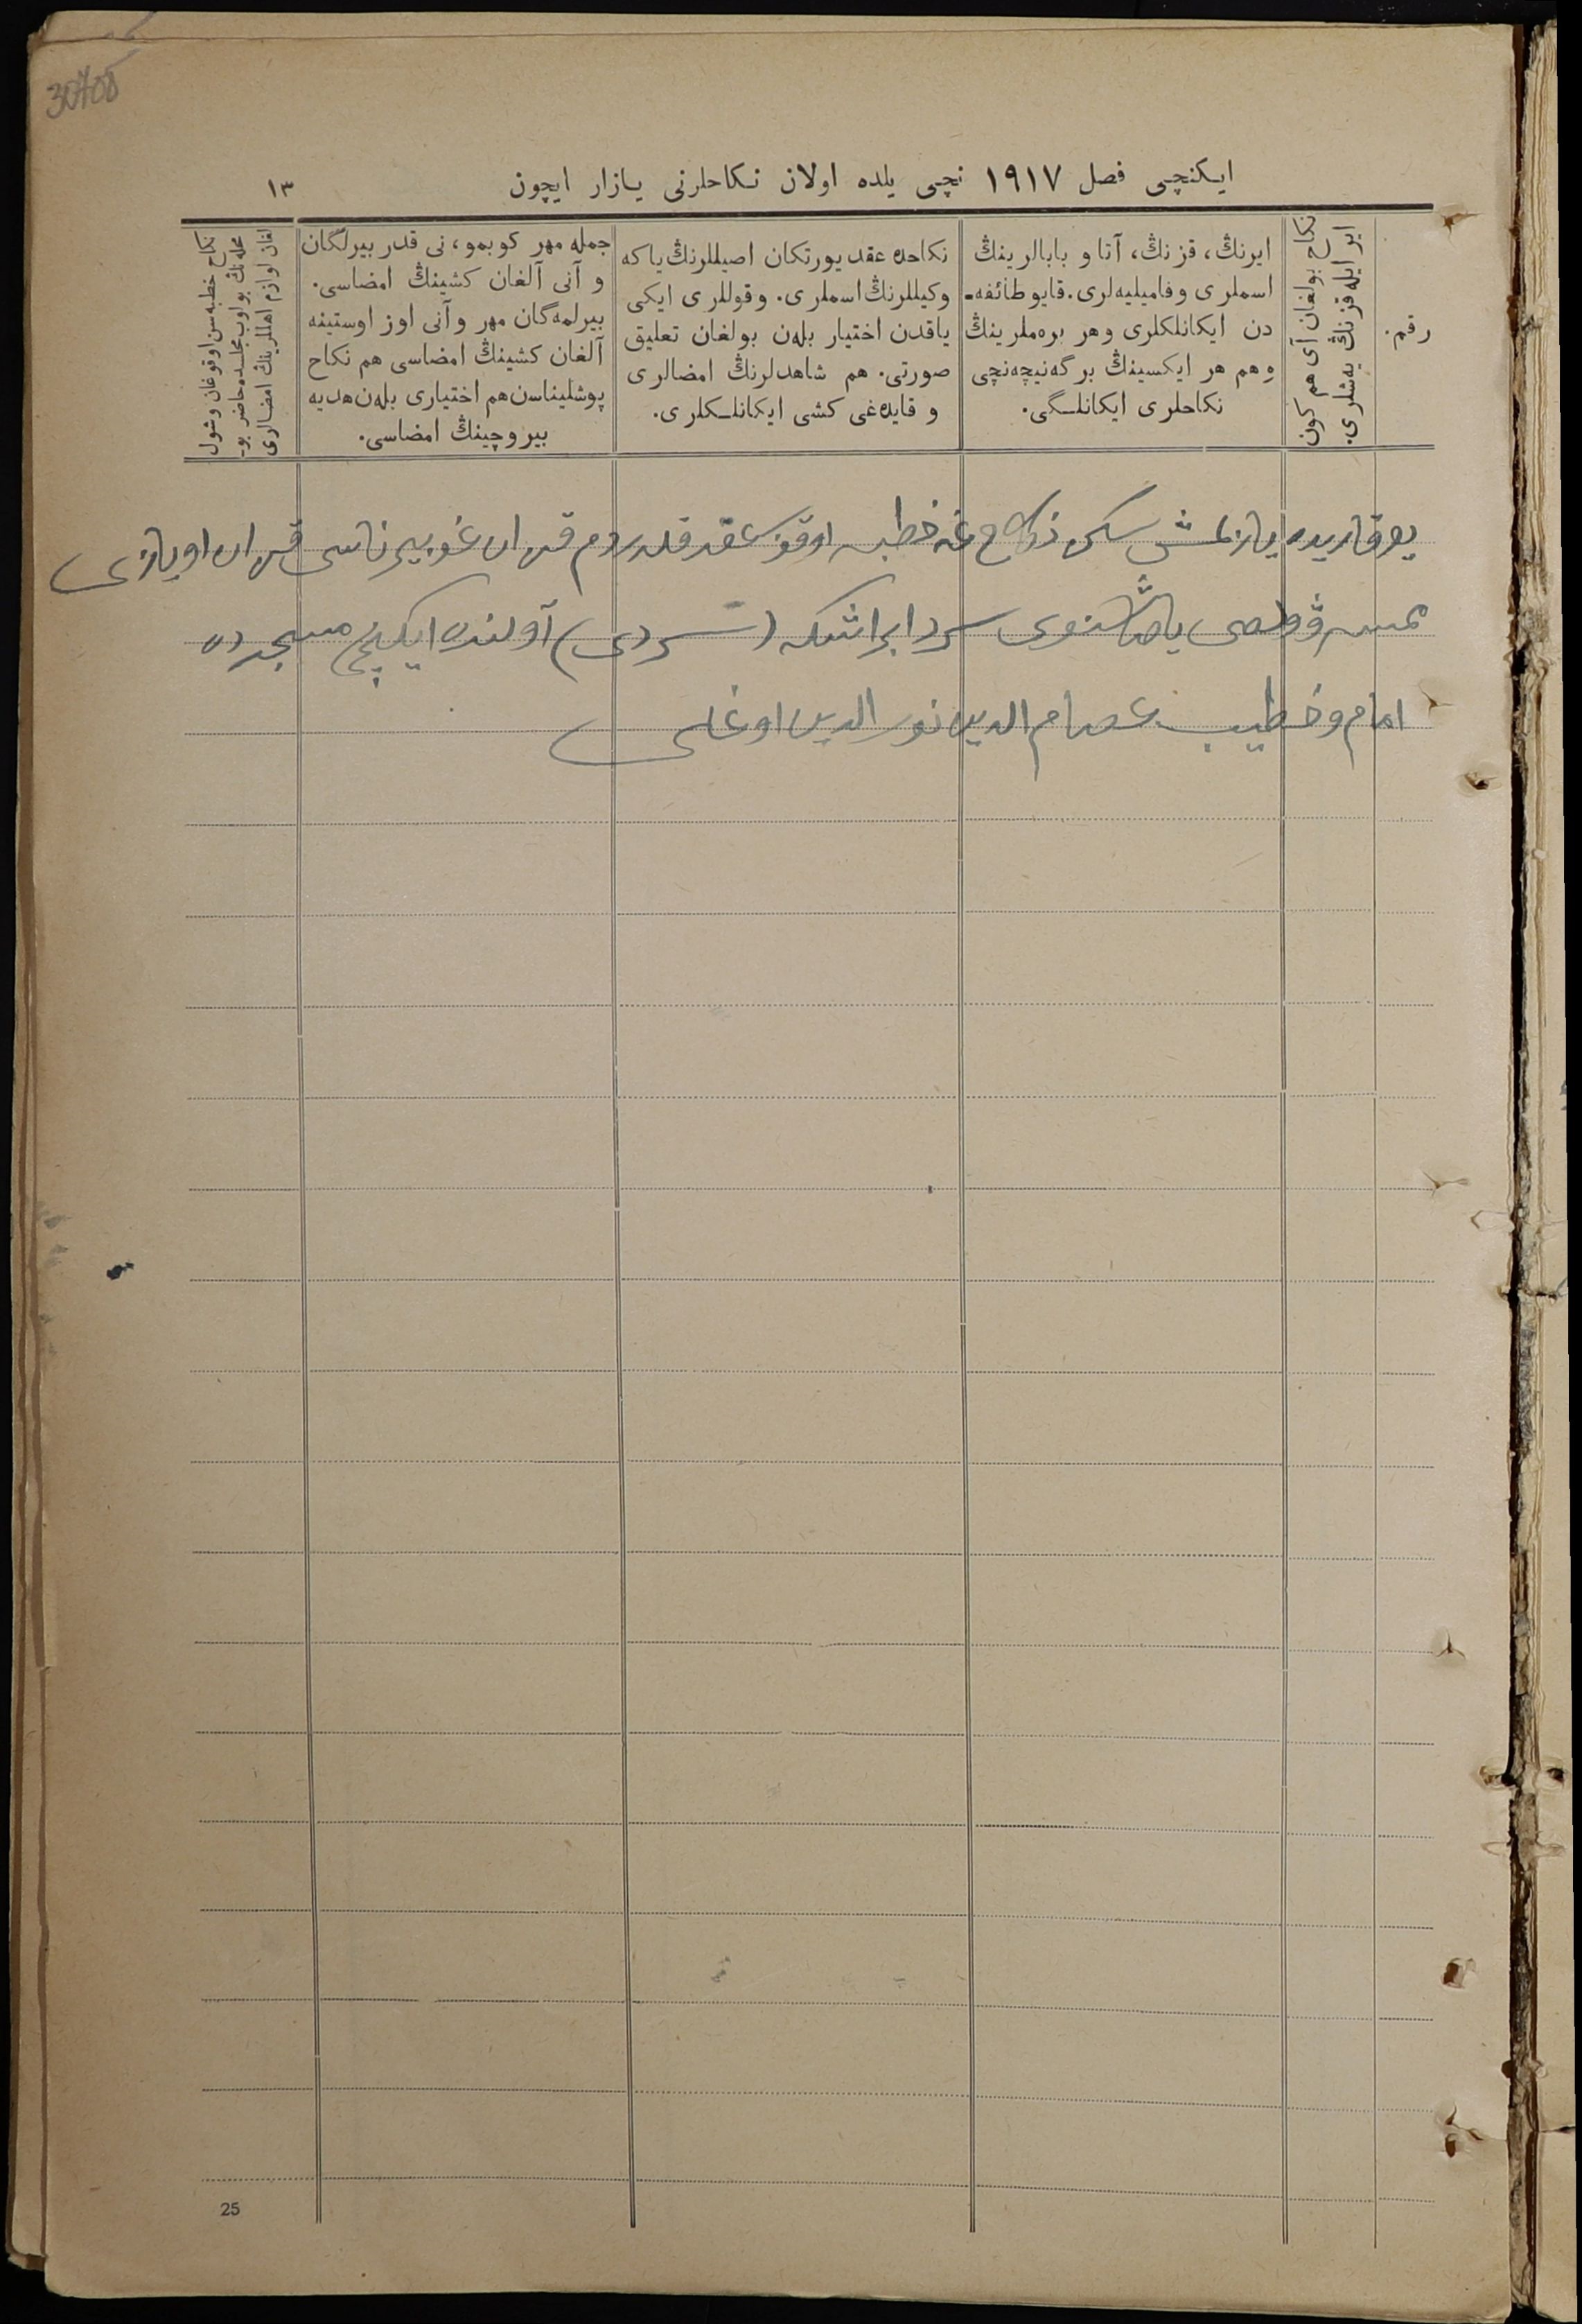 30708
ایکنچی فصل ١٩١٧ نچی یلده اولان نکاحلرنی یازار ایچون
١٣
رقم.
نکاح بولغان آی هم کون
ایر ایله قزنڭ یەشلری.
ایرنڭ، قزنڭ، آتا و بابالرینڭ
اسملری وفامیلیەلری. قایو طائفه‌ـ
دن ایکانلکلری وهر برەملرینڭ
وهم هر ایکسینڭ برگه‌نیچه‌نچی
نکاحلری ایکانلـگی.
نکاحده عقد یورتکان اصیللرنڭ یاکه
وکیللرنڭ اسملری. وقوللری ایکی
یاقدن اختیار بلەن بولغان تعلیق
صورتی. هم شاهدلرنڭ امضالری
و قایده‌غی کشی ایکانلـکلری.
جمله مهر کوبمو، نی قدر بیرلگان
و آنی آلغان کشینڭ امضاسی.
بیرلمه‌گان مهر وآنی اوز اوستینه
آلغان کشینڭ امضاسی هم نکاح
پوشلیناسن هم اختیاری بلەن هدیه
بیروچینڭ امضاسی.
نکاح خطبه‌سن اوقوغان وشول
محله‌نڭ بولوب مجلسده حاضر بوـ
لغان لوازم اهللرینڭ امضالری
یوقاریده یازلمش سکز نکاح غه خطبه اوقوب عقد قلدردم قزان غوبیرناسی قزان اویازی
سردا (سردی) آولنده ایکینچی مسجدده
امام وخطیب عصام الدین نورالدین اوغلی
25